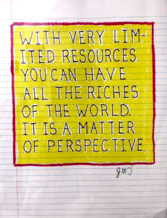 WITH VERY LIM-
ITED RESOURCES
YOU CAN HAVE
ALL THE RICHES
OF THE WORLD.
IT IS A MATTER
OF PERSPECTIVE